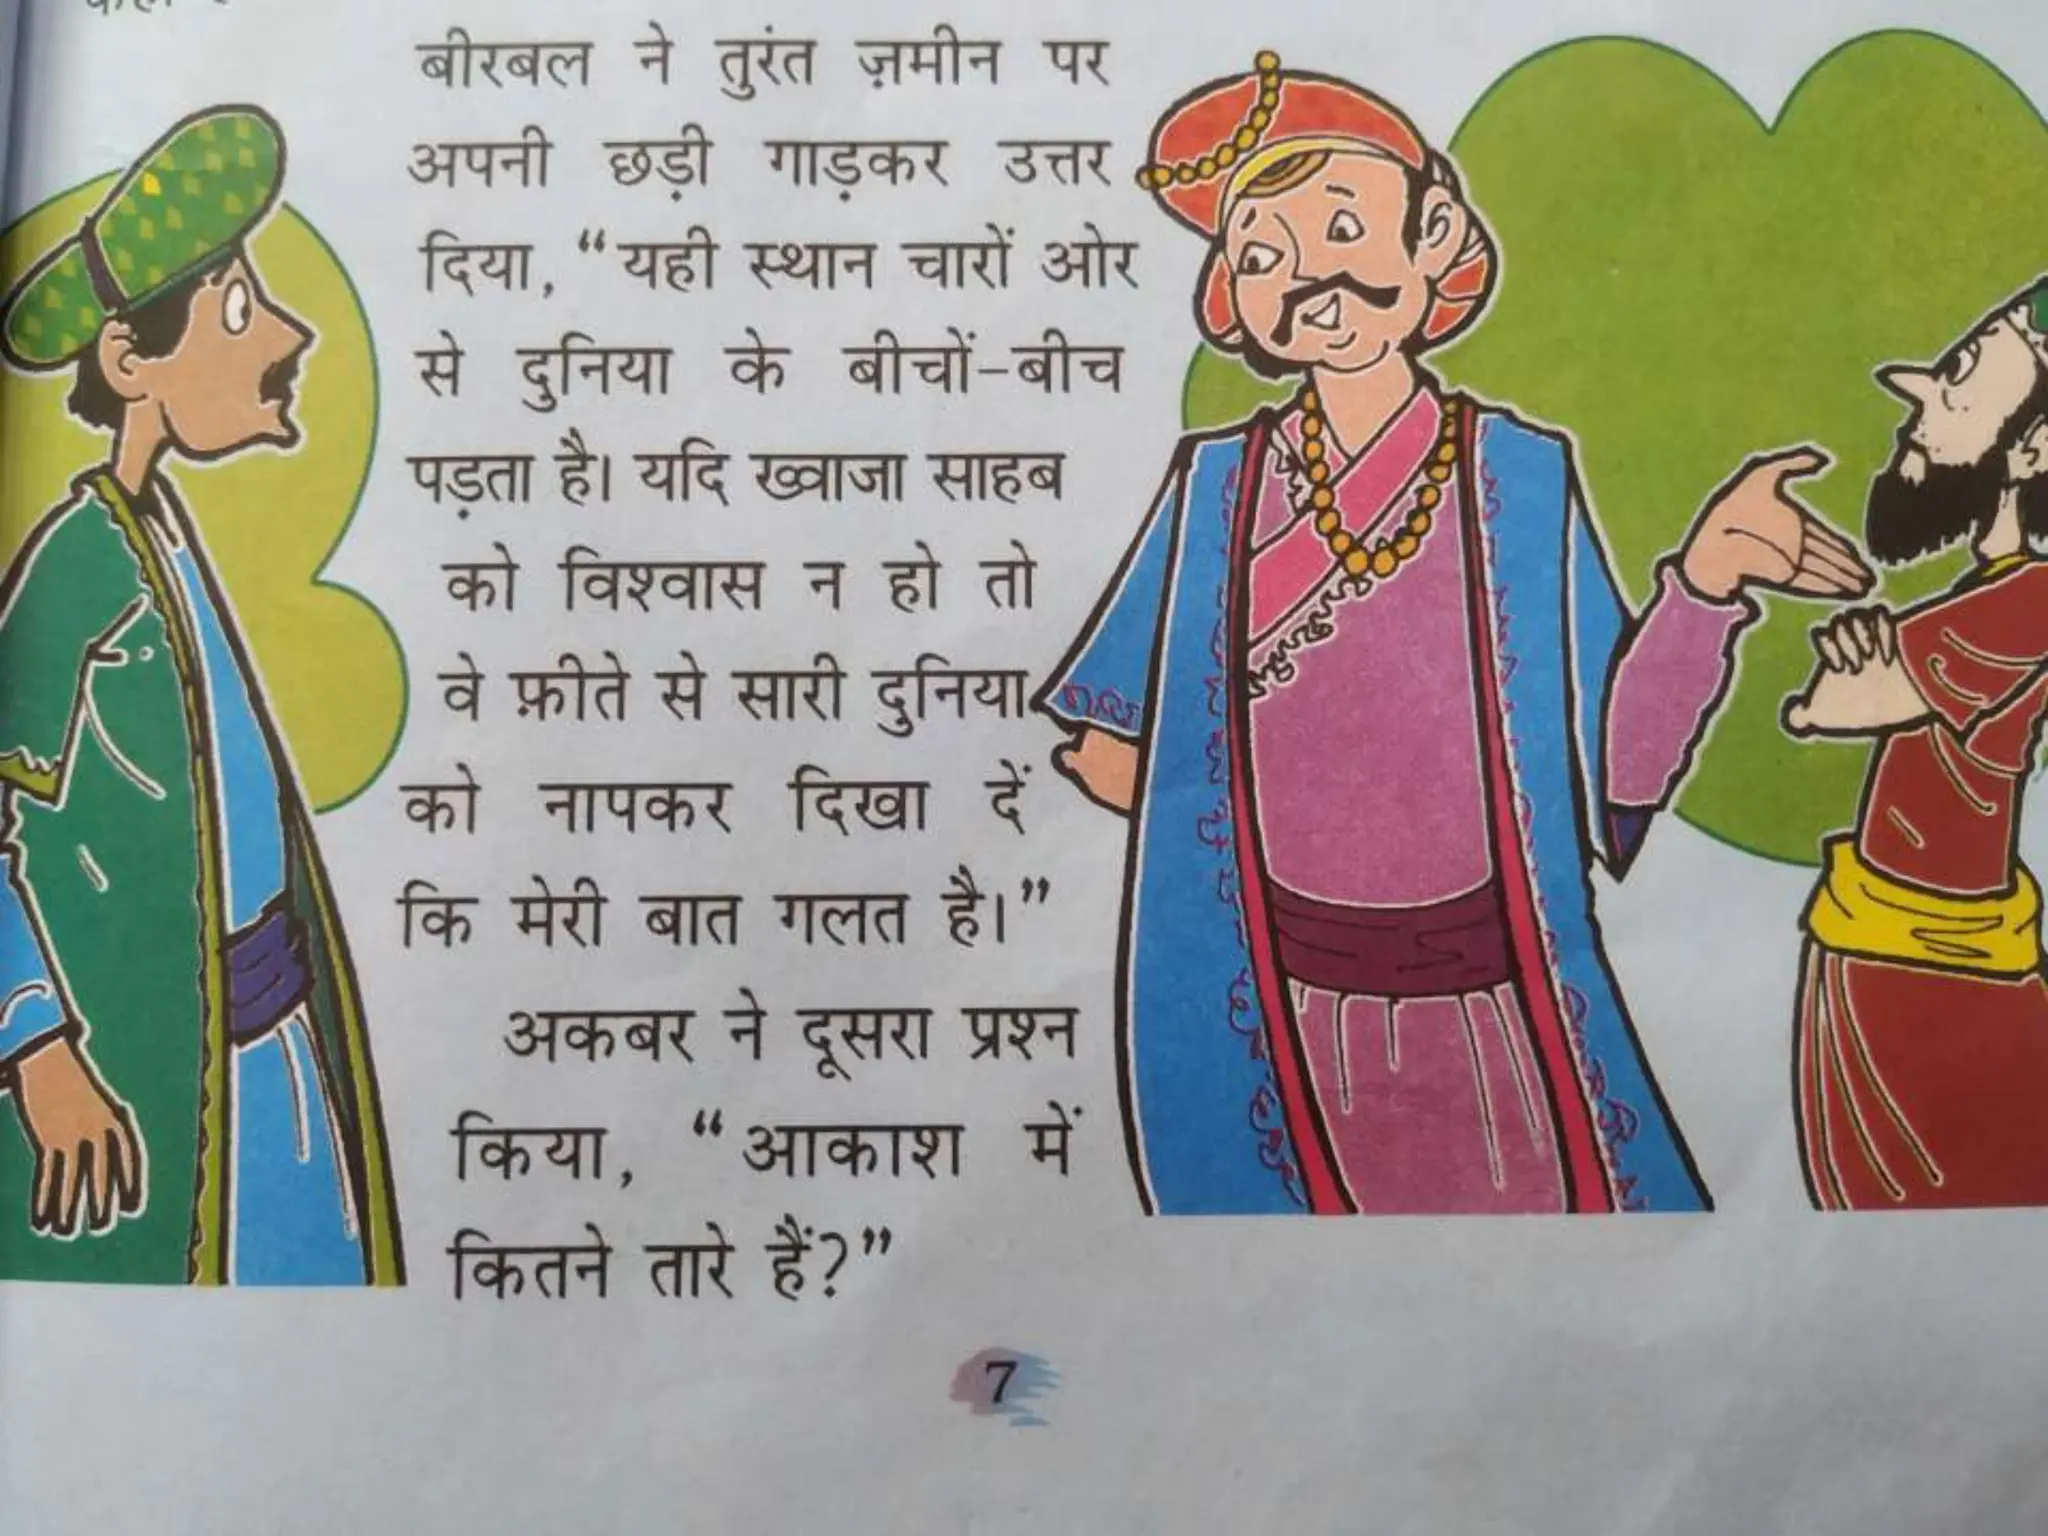 बीरबल ने तुरंत ज़मीन पर
अपनी छड़ी गाड़कर उत्तर
दिया, “यही स्थान चारों ओर
से दुनिया के बीचों-बीच
पड़ता है। यदि ख्वाजा साहब
को विश्वास न हो तो
वे फ़ीते से सारी दुनिया
को नापकर दिखा दें
कि मेरी बात गलत है।”
अकबर ने दूसरा प्रश्न
किया, “आकाश में
कितने तारे हैं?”
7